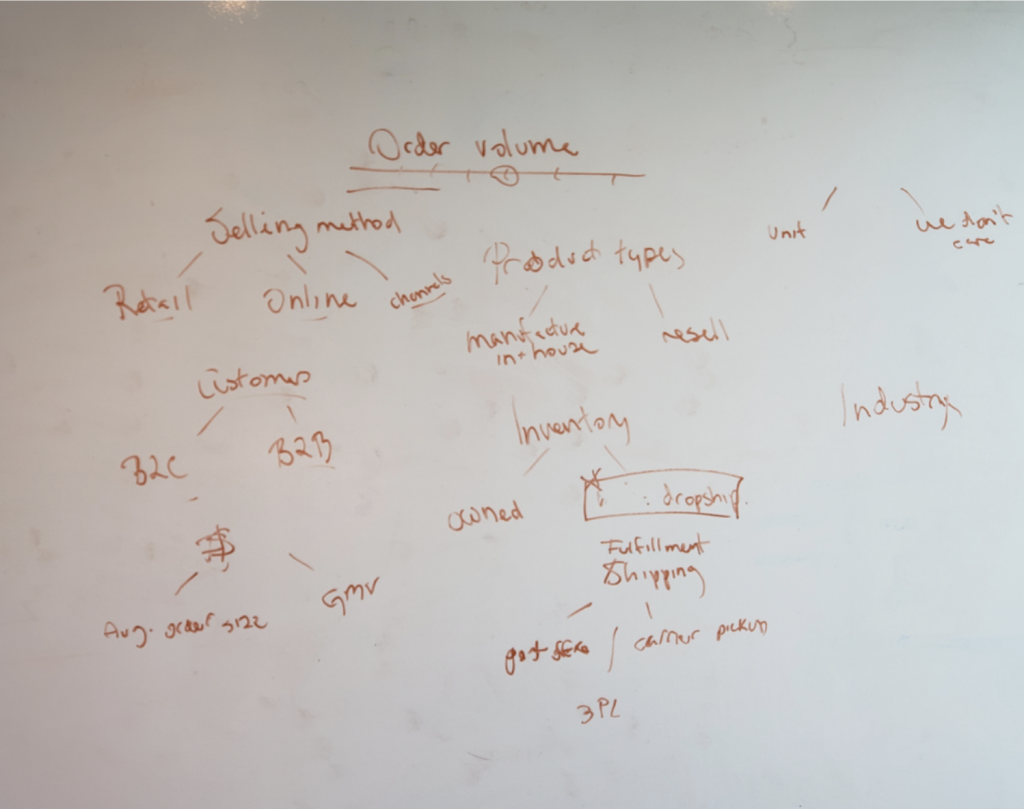 Order volume
Selling method
Retail
Online
channels
Product types
manufacture
in-house
resell
unit
we don't
care
Customers
B2C
B2B
Inventory
owned
: dropship
Industry
$
Avg. order size
GMV
Fulfillment
Shipping
post
/ carrier pickup
3PL